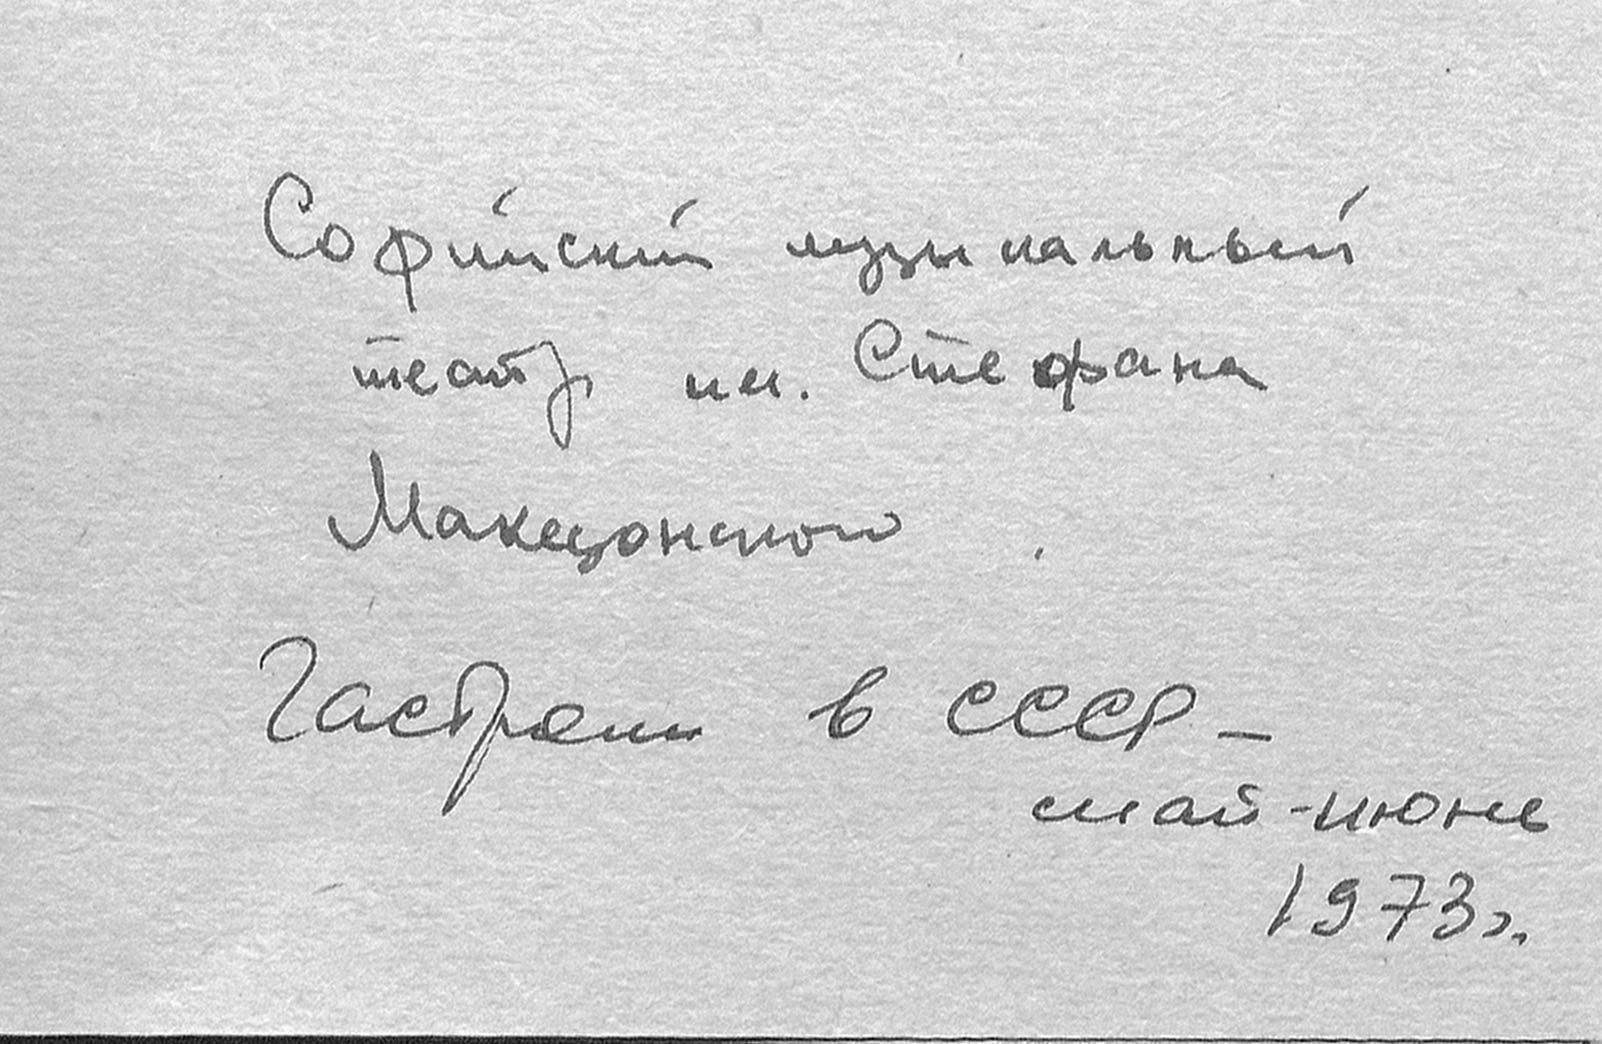 Софийский музыкальный
театр им. Стефана
Македонского
Гастроли в СССР –
май-июнь
1973г.